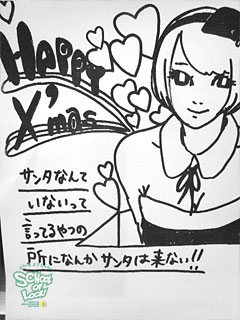 HAPPY
X'mas
サンタなんて
いないって
言ってるやつの
所になんかサンタは来ない!!
SCHOOL
OF
LOCK!